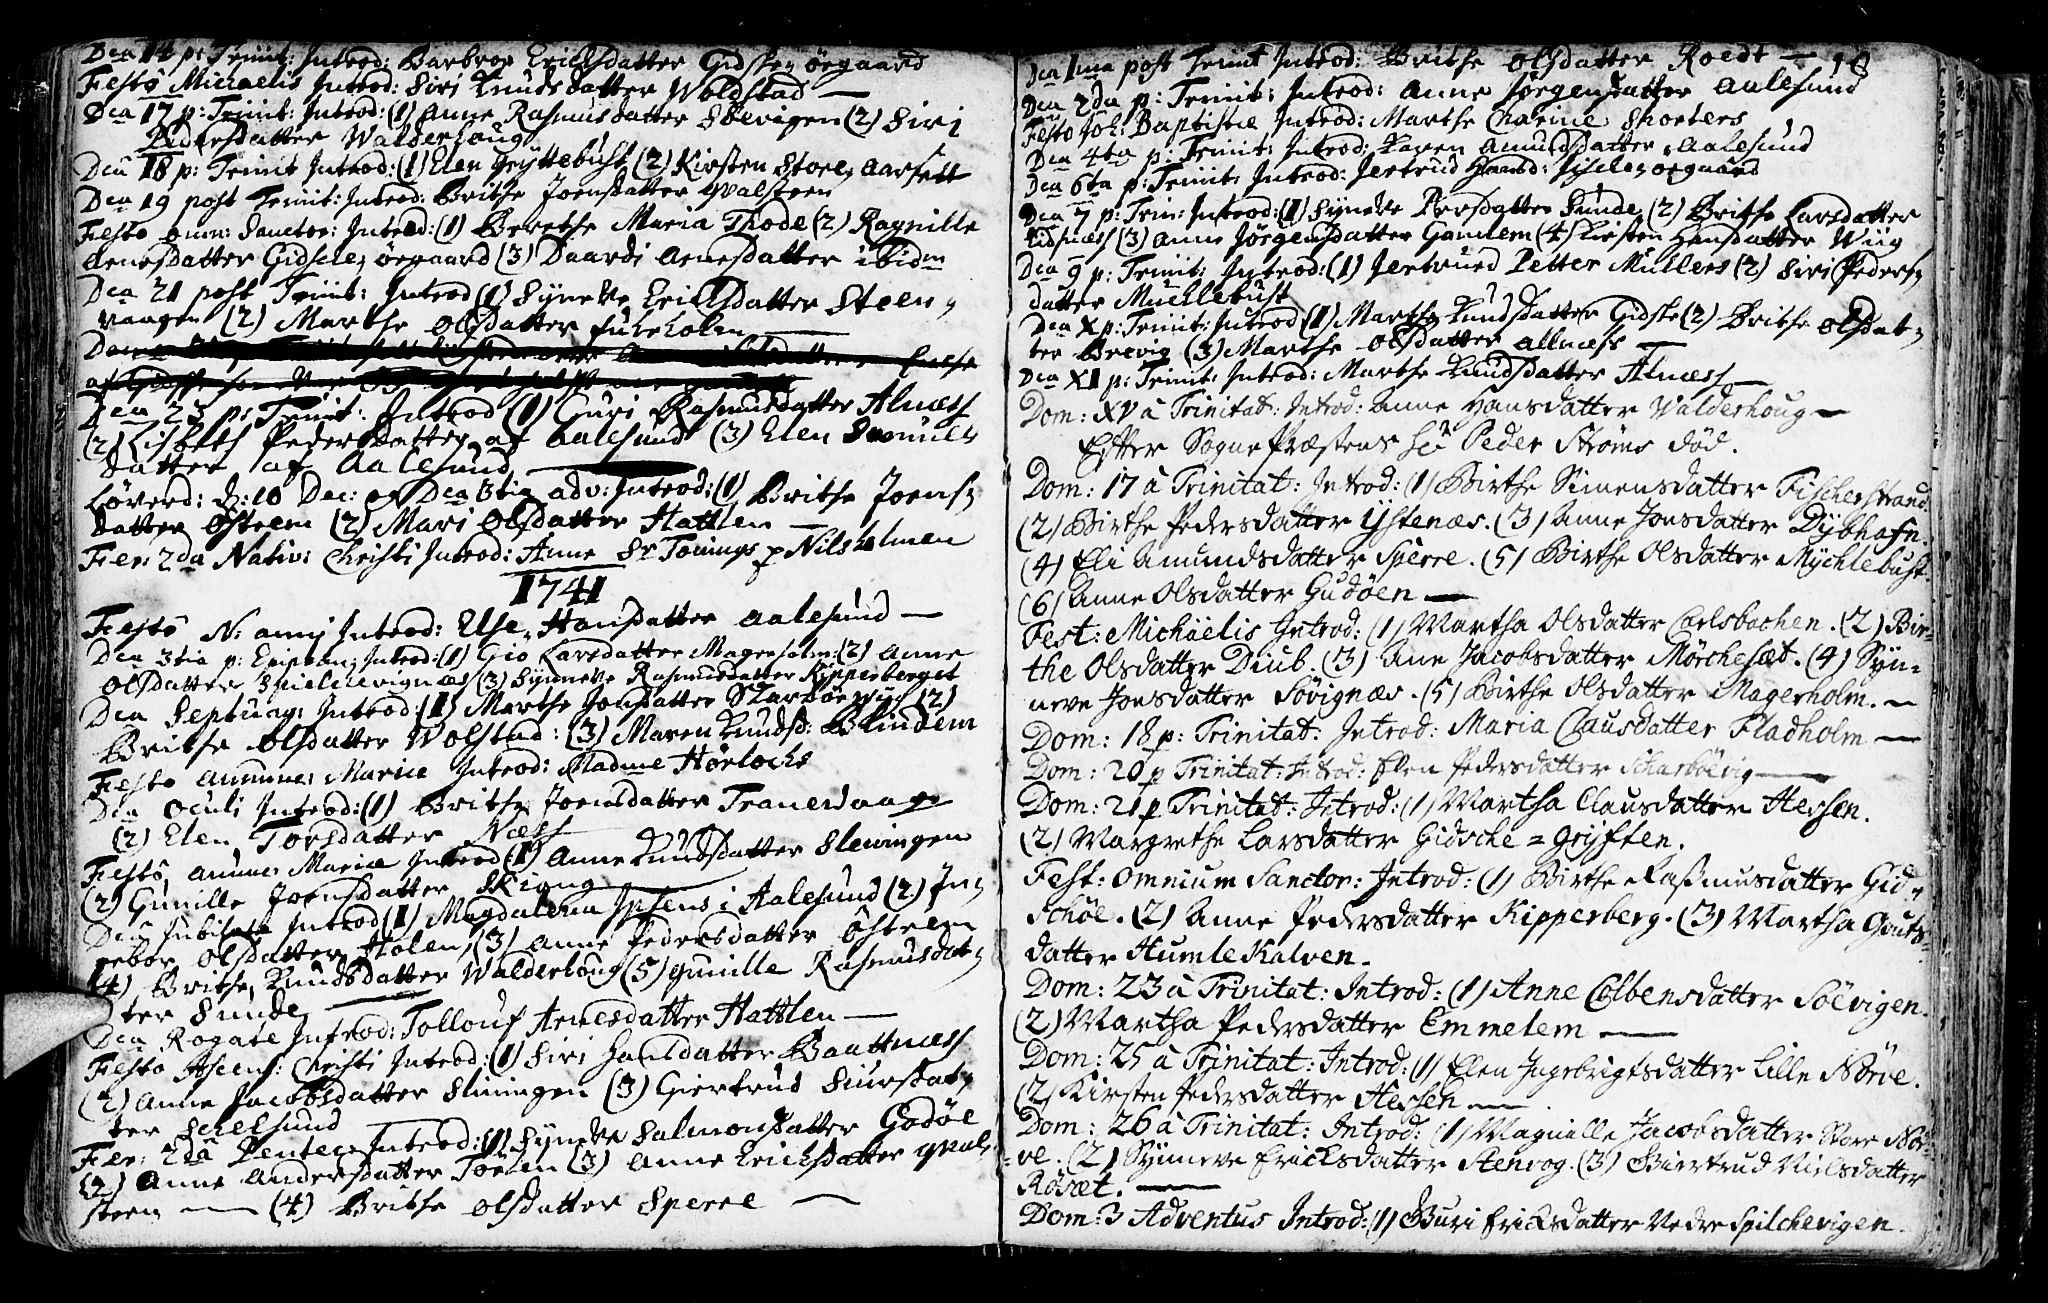 Dca 14 p: Trinit: Introd: Barbroe Ericksdatter Gidske, ørgaard
Festo Michaelis Introd: Siri Knudsdatter Woldstad —
Dca 17 p: Trinit: Introd: (1) Anne Rasmusdatter (2) Siri
Pedersdatter Walderhoug
Dca 18 p: Trinit Introd: (1) Elen Gryttebust (2) Kirsten Store, Aarsett
Dca 19 post Trinit: Introd: Brithe Joensdatter qvalsteen
Festo omn: Sanctor: Introd: (1) Berethe Maria Thode (2) Ragnille
Arnesdatter Gidscle, ørgaard (3) Daardi Arnesdatter ibidm
Dca 21 post Trinit: Introd (1) Synneve Ericksdatter Steen,
vaagen (2) Marthe Olsdatter —
Dca 23 p: Trinit: Introd (1) Guri Rasmusdatter Alness
(2) Lisbeth Pedersdatter af Aalesund (3) Elen Samuels
datter af Aalesund —
Løverd: d: 10 Dec: og Dca 3tia adv: Introd: (1) Brithe Joens,
datter Østrem (2) Mari Olsdatter Hattlen —
Fer: 2da Nativ: Christi Introd: Anne Sr Tonings p Nilsholmen
1741
Festo N: anni Introd: Else Hansdatter Aalesund —
Dca 3tia p: Epiphan: Introd: (1) Gio Larsdatter Magerholm (2) Anne
Olsdatter Spielchevignæs (3) Synneve Rasmusdatter Kipperberget
Dca Septuag: Introd: (1) Marthe Jonsdatter Skarbøevig (2)
Brithe Olsdatter Wolstad: (3) Maren Knudsd: Blindem
Festo Annunc: Mariæ Introd: Madme Hørlochs
Dca Oculi Introd: (1) Brithe Joensdatter Tranevaag
(2) Elen Torsdatter Næss
Festo Annunc: Mariæ Introd (1) Anne Knudsdatter Slewingen
(2) Gunille Joensdatter Skiong
Dca Jubilate Introd (1) Magdalena Ipsens i Aalesund (2) In,
gebor Olsdatter Holen (3) Anne Pedersdatter Østrem
(4) Brithe Knudsdatter Walderhoug (5) Gunille Rasmusdat,
ter Sunde —
Dca Rogate Introd: Tollouf Arnesdatter Hattlen —
Festo Ascens: Christi Introd: (1) Siri Hansdatter Baattnæss
(2) Anne Jacobsdatter Sliningen (3) Giertrud Siursdat,
ter —
Fer: 2da Pentec: Introd: (1) Synneve Salmonsdatter Godøe
(2) Anne Andersdatter (3) Anne Ericksdatter qval,
steen — (4) Brithe Olsdatter Sperre —
Dca 1ma post Trinit Introd: Brithe Olsdatter Roedt — 18
Dca 2da p: Trinit: Introd: Anne Jørgensdatter Aalesund
Festo Joh: Baptistæ Introd: Marthe Shorters
Dca 4ta p: Trinit: Introd: Karen Amundsdatter Aalesund
Dca 6ta p: Trinit: Introd: Jertrud Hansd: Giscle, ørgaard
Dca 7 p: Trin: Introd: (1) Synneve Persdatter Sunde (2) Brithe Larsdatter
Eidsnæss (3) Anne Jørgensdatter Gamlem (4) Kirsten Hansdatter Wiig
Dca 9 p: Trinit: Introd: (1) Jertrued Petter Müllers (2) Siri Peders,
datter Mucklebust
Dca X p: Trinit: Introd (1) Marthe Knudsdatter Gidske (2) Brithe Olsdat,
ter Brevig (3) Marthe Olsdatter Allnæss —
Dca XI p: Trinit: Introd: Marthe Knudsdatter Alness —
Dom: XV à Trinitat: Introd: Anne Hansdatter Walderhoug —
Efter Sogne Præstens Hr Peder Strøms død.
Dom: 17 à Trinitat: Introd: (1) Birthe Simensdatter Fischerstrand.
(2) Birthe Pedersdatter Ystenæs. (3) Anne Jonsdatter Dybhafn.
(4) Eli Amundsdatter Sperre. (5) Birthe Olsdatter Mychlebust.
(6) Anne Olsdatter Gudøen —
Fest: Michaelis Introd: (1) Martha Olsdatter Carlsbachen. (2) Bir=
the Olsdatter Diub. (3) Ane Jacobsdatter Mørchesæt. (4) Syn=
neve Jonsdatter Søvignæs. (5) Birthe Olsdatter Magerholm. —
Dom: 18 p: Trinitat: Introd: Maria Clausdatter Fladholm —
Dom: 20 p Trinitat: Introd: Elen Pedersdatter Scharbøevig —
Dom: 21 p Trinitat: Introd: (1) Martha Clausdatter Hessen.
(2) Margrethe Larsdatter Gidsche = Gryften.
Fest: Omnium Sanctor: Introd: (1) Birthe Rasmusdatter Gid=
schøe. (2) Anne Pedersdatter Kipperberg. (3) Martha Gouts=
datter Humlekalven.
Dom: 23 à Trinitat: Introd: (1) Anne Colbensdatter Søevigen.
(2) Martha Pedersdatter Emmelem —
Dom: 25 à Trinitat: Introd: (1) Elen Ingebrigtsdatter Lille Nørve.
(2) Kirsten Pedersdatter Hessen —
Dom: 26 à Trinitat: Introd: (1) Magnille Jacobsdatter Store Nør=
ve. (2) Synneve Ericksdatter Stenvog. (3) Giertrud Nielsdatter
Røsæt. —
Dom: 3 Adventus Introd: (1) Guri Ericksdatter Vedre Spilchevigen.